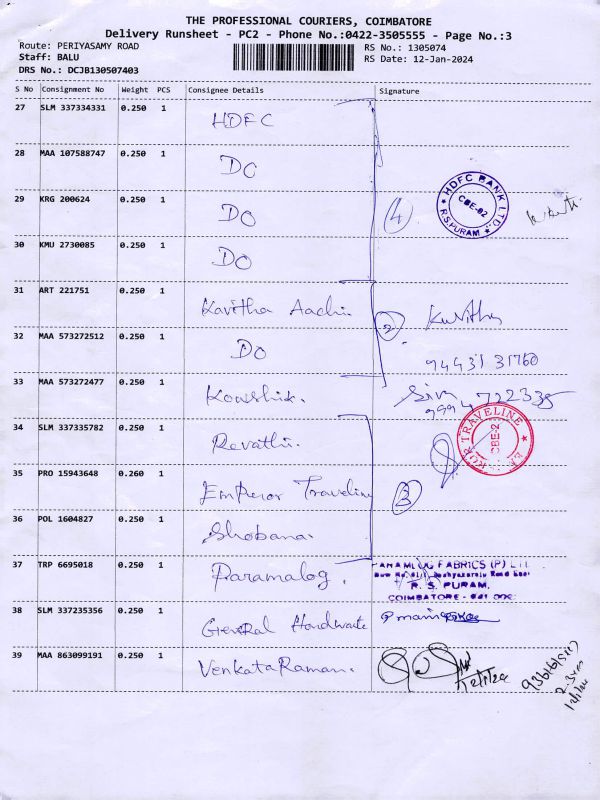 THE PROFESSIONAL COURIERS, COIMBATORE
Delivery Runsheet - PC2 - Phone No.:0422-3505555 - Page No.:3
Route: PERIYASAMY ROAD
RS No.: 1305074
Staff: BALU
RS Date: 12-Jan-2024
DRS No.: DCJB130507403
S No Consignment No Weight PCS Consignee Details Signature
27 SLM 337334331 0.250 1 HDFC
28 MAA 107588747 0.250 1 DO
29 KRG 200624 0.250 1 DO 4
HDFC BANK LTD. CBE-02 R.S.PURAM
30 KMU 2730085 0.250 1 DO
31 ART 221751 0.250 1 Kavitha Aachi 2 Kavitha
32 MAA 573272512 0.250 1 DO 94431 31760
33 MAA 573272477 0.250 1 Koushik. Siva
9994722335
34 SLM 337335782 0.250 1 Revathi.
TRAVELINE CBE-2
35 PRO 15943648 0.260 1 Emperor Traveline 3
36 POL 1604827 0.250 1 Shobana.
37 TRP 6695018 0.250 1 Paramalog.
FABRICS (P) LTD
R. S. PURAM,
COIMBATORE - 641 002
38 SLM 337235356 0.250 1 General Hardware
39 MAA 863099191 0.250 1 VenkataRaman. 12/1/24
12/1/24